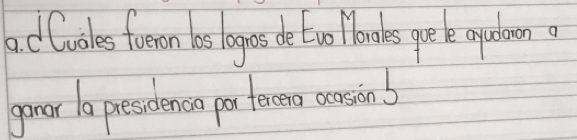 a. ¿Cuáles fueron los logros de Evo Morales que le ayudaron a
ganar la presidencia por tercera ocasión?